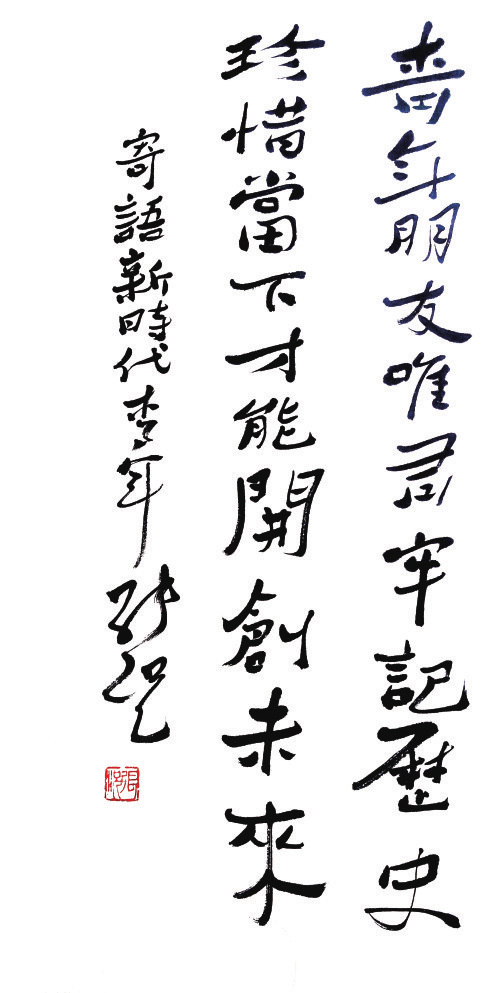 青年朋友唯有牢記歷史
珍惜當下才能開創未來
寄語新時代青年 張